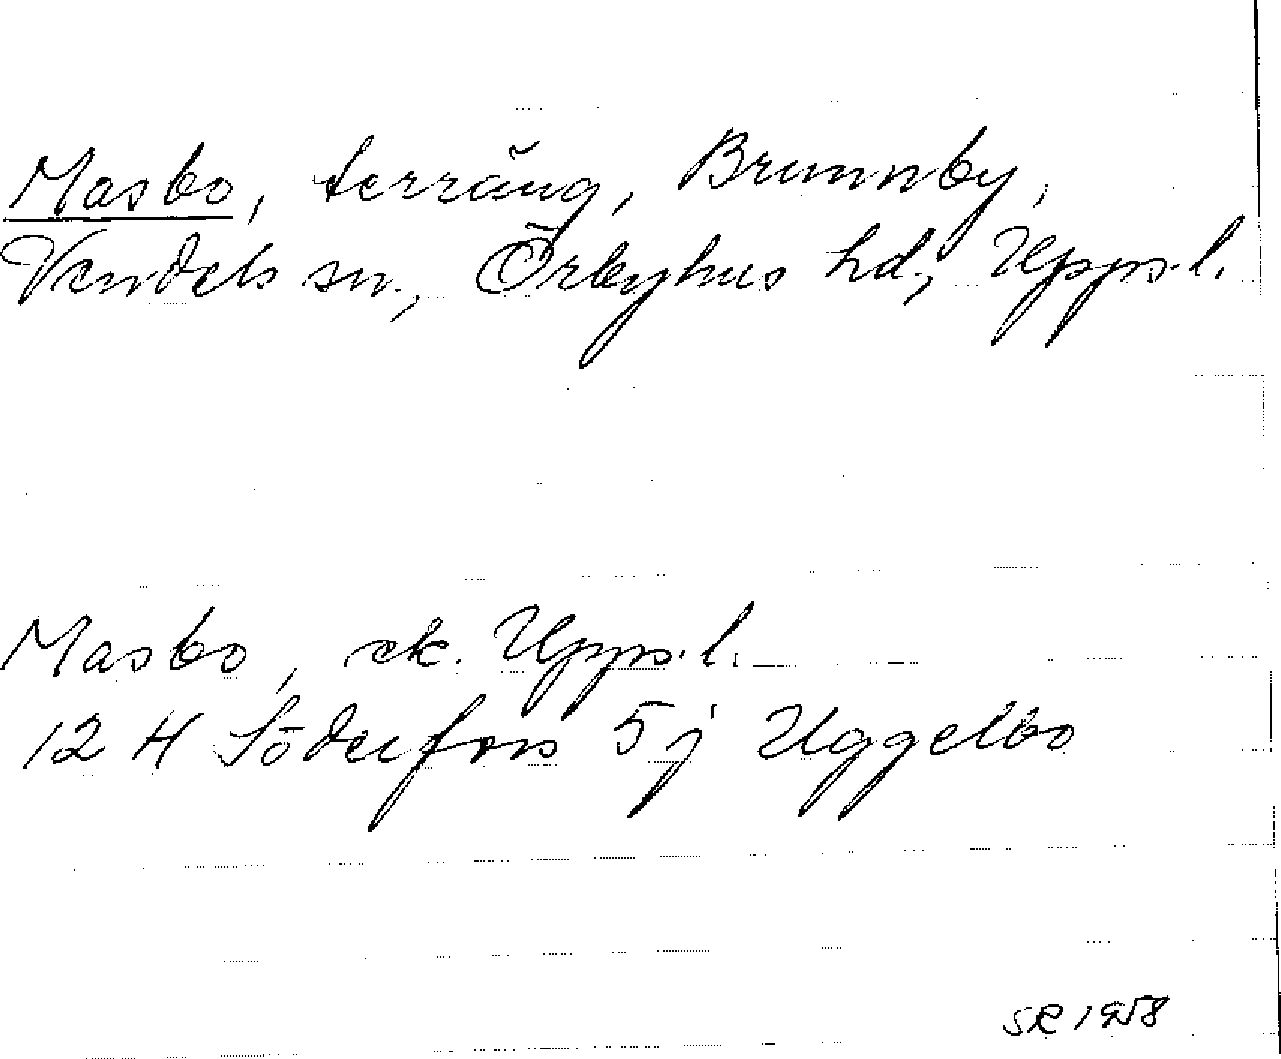 Masbo, terräng, Brunnby,
Vendels sn., Örbyhus hd., Upps. l.
Masbo, ek. Upps. l.
12 H Söderfors 5 j Uggelbo
SR 1958